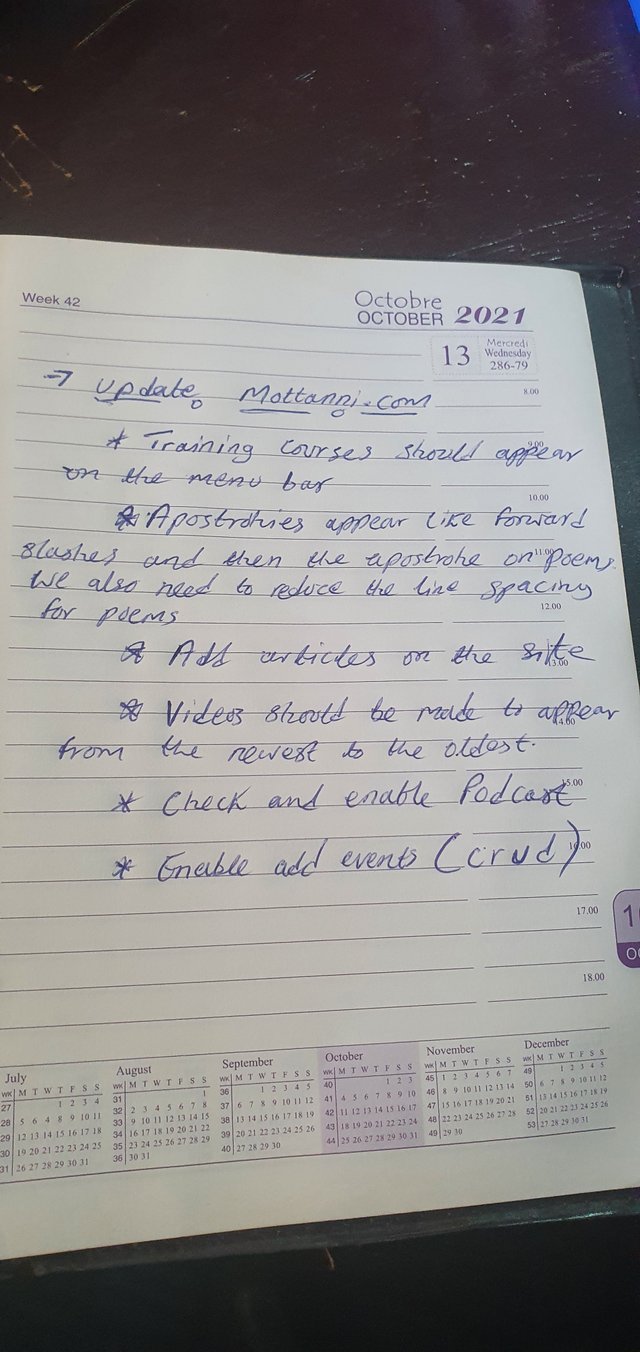 Week 42
Octobre
OCTOBER 2021
13
Mercredi
Wednesday
286-79
8.00
→ update. Mottanni.com
9.00
* Training courses should appear
on the menu bar
10.00
* Apostrohies appear like forward
slashes and then the apostrohe on poems.
11.00
We also need to reduce the line spacing
12.00
for poems
* Add articles on the site
13.00
* Videos should be made to appear
14.00
from the newest to the oldest.
15.00
* Check and enable Podcast
* Enable add events (crud)
16.00
17.00
18.00
July
WK M T W T F S S
27 1 2 3 4
28 5 6 7 8 9 10 11
29 12 13 14 15 16 17 18
30 19 20 21 22 23 24 25
31 26 27 28 29 30 31
August
WK M T W T F S S
31 1
32 2 3 4 5 6 7 8
33 9 10 11 12 13 14 15
34 16 17 18 19 20 21 22
35 23 24 25 26 27 28 29
36 30 31
September
WK M T W T F S S
36 1 2 3 4 5
37 6 7 8 9 10 11 12
38 13 14 15 16 17 18 19
39 20 21 22 23 24 25 26
40 27 28 29 30
October
WK M T W T F S S
40 1 2 3
41 4 5 6 7 8 9 10
42 11 12 13 14 15 16 17
43 18 19 20 21 22 23 24
44 25 26 27 28 29 30 31
November
WK M T W T F S S
45 1 2 3 4 5 6 7
46 8 9 10 11 12 13 14
47 15 16 17 18 19 20 21
48 22 23 24 25 26 27 28
49 29 30
December
WK M T W T F S S
49 1 2 3 4 5
50 6 7 8 9 10 11 12
51 13 14 15 16 17 18 19
52 20 21 22 23 24 25 26
53 27 28 29 30 31